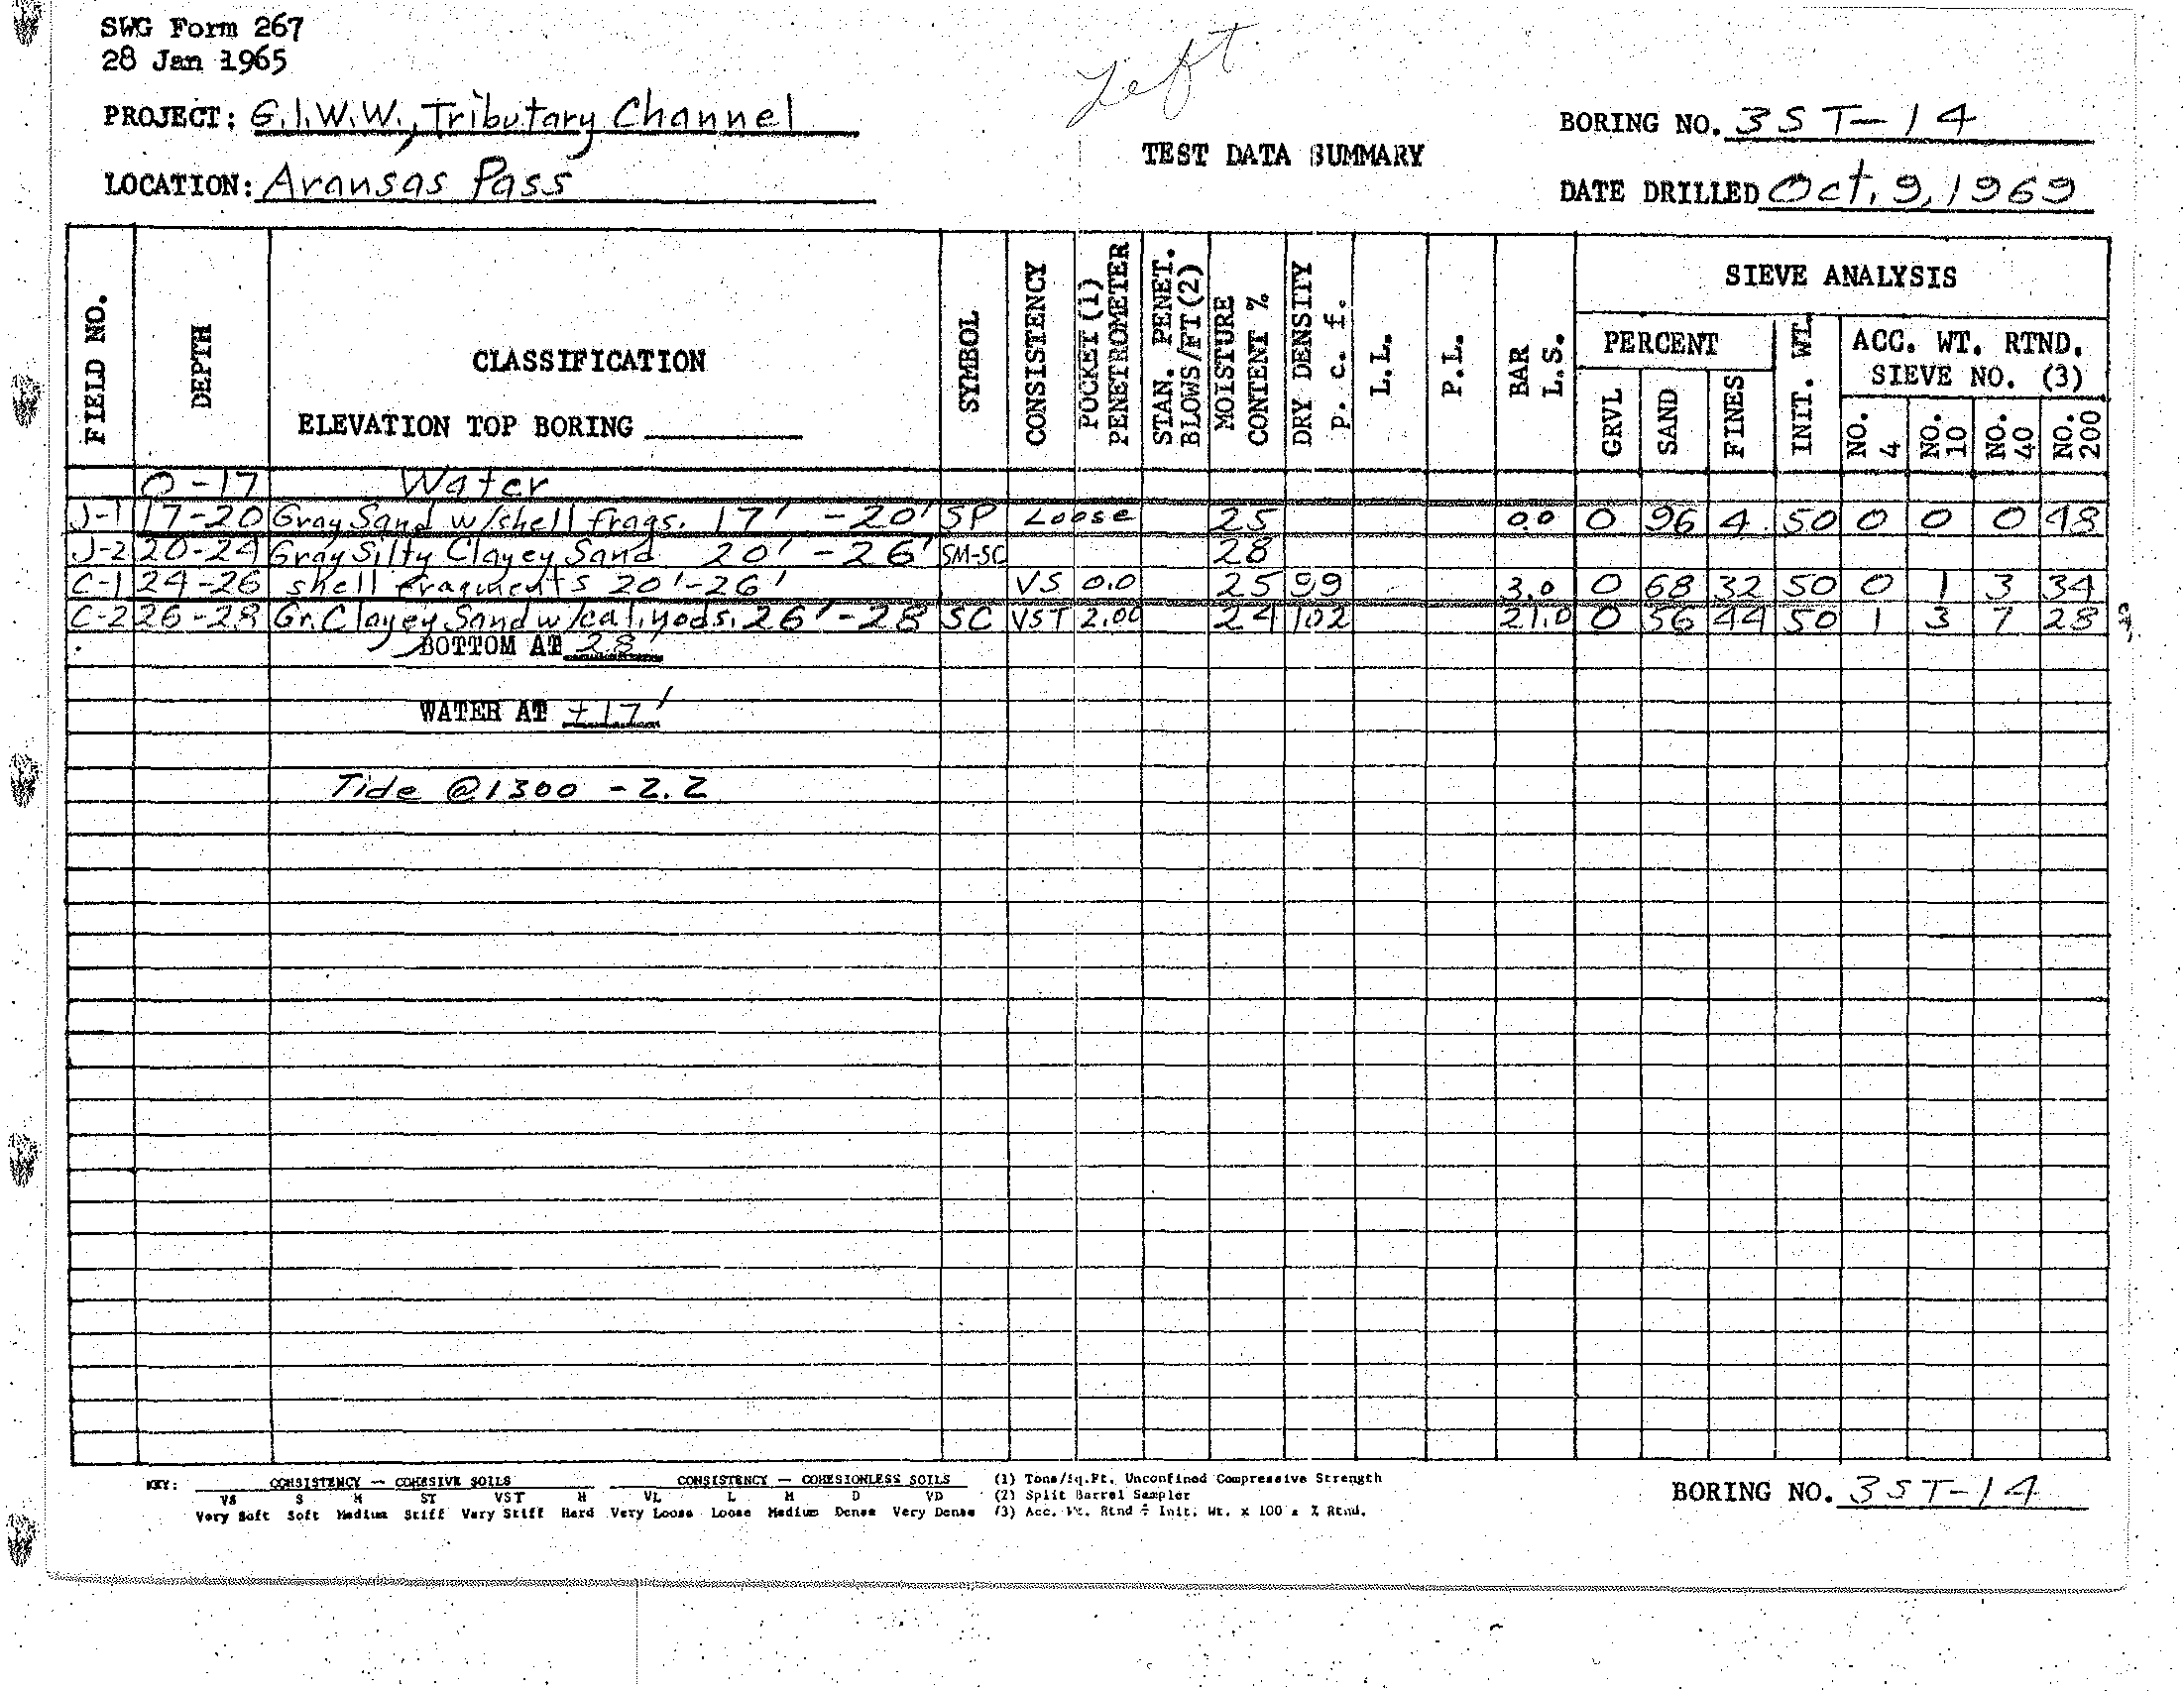 SWG Form 267
28 Jan 1965
Left
PROJECT: G.I.W.W., Tributary Channel
BORING NO. 3ST-14
TEST DATA SUMMARY
LOCATION: Aransas Pass
DATE DRILLED Oct, 9, 1969
FIELD NO.
DEPTH
CLASSIFICATION
ELEVATION TOP BORING
SYMBOL
CONSISTENCY
POCKET (1)
PENETROMETER
STAN. PENET.
BLOWS/FT (2)
MOISTURE
CONTENT %
DRY DENSITY
p. c. f.
L.L.
P.L.
BAR
L.S.
SIEVE ANALYSIS
PERCENT
GRVL
SAND
FINES
INIT. WT.
ACC. WT. RTND.
SIEVE NO. (3)
NO. 4
NO. 10
NO. 40
NO. 200
0-17 Water
J-1 17-20 Gray Sand w/shell frags. 17' - 20' SP Loose 25 0.0 0 96 4 50 0 0 0 48
J-2 20-24 Gray Silty Clayey Sand 20' - 26' SM-SC 28
C-1 24-26 shell fragments 20'-26' VS 0.0 25 99 3.0 0 68 32 50 0 1 3 34
C-2 26-28 Gr. Clayey Sand w/cal. nods. 26'-28 SC VST 2.00 24 102 21.0 0 56 44 50 1 3 7 28
BOTTOM AT 28'
WATER AT +17'
Tide @1300 -2.2
KEY: CONSISTENCY — COHESIVE SOILS
VS S M ST VST H
Very Soft Soft Medium Stiff Very Stiff Hard
CONSISTENCY — COHESIONLESS SOILS
VL L M D VD
Very Loose Loose Medium Dense Very Dense
(1) Tons/Sq.Ft. Unconfined Compressive Strength
(2) Split Barrel Sampler
(3) Acc. Wt. Rtnd ÷ Init. Wt. x 100 = % Rtnd.
BORING NO. 3ST-14